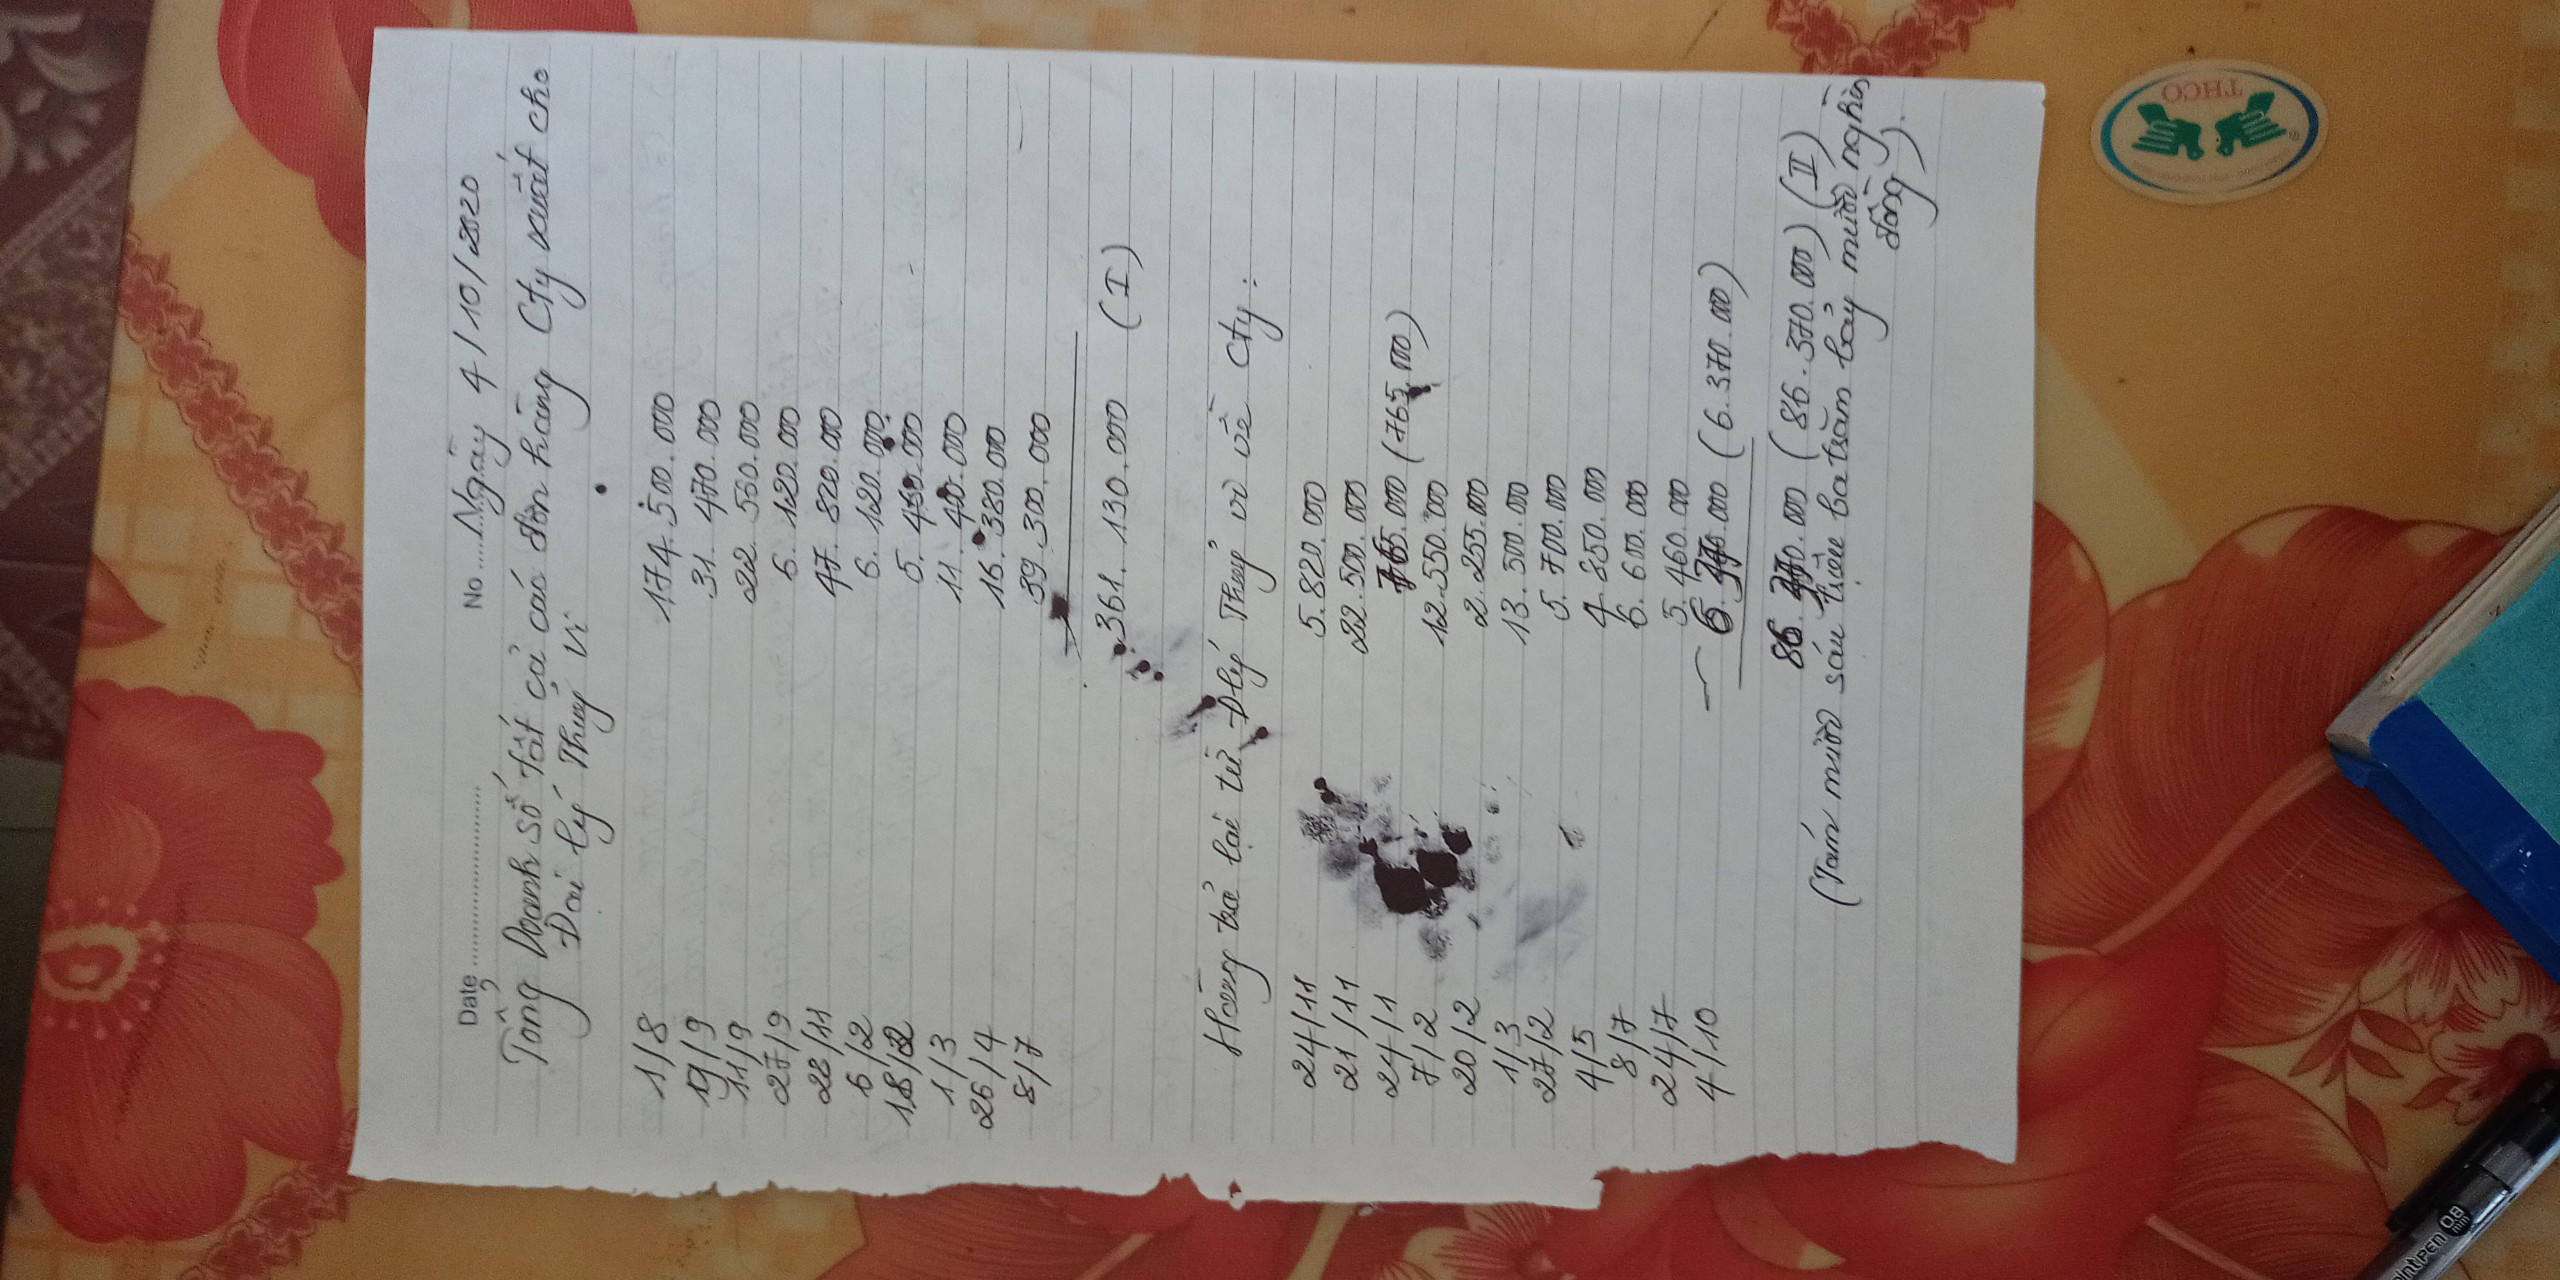 Date ........................... No ........ Ngày 4/10/2020
Tổng Doanh số tất cả các đơn hàng Cty xuất cho
Đại lý Thuỷ Vi
1/8 174.500.000
19/9 31.470.000
11/9 22.560.000
27/9 6.120.000
28/11 47.820.000
6/2 6.120.000
18/2 5.460.000
1/3 11.400.000
26/4 16.380.000
8/7 39.300.000
361.130.000 (I)
Hàng trả lại từ Đlý Thuỷ vi về Cty:
24/11 5.820.000
21/11 22.500.000
24/1 765.000 (765.000)
7/2 12.550.000
20/2 2.255.000
1/3 13.500.000
27/2 5.700.000
4/5 4.850.000
8/7 6.600.000
24/7 5.460.000
4/10 6.370.000 (6.370.000)
86.370.000 (86.370.000) (II)
(Tám mươi sáu triệu ba trăm bảy mươi nghìn
đồng).
THCO
PEN 0.8
mm